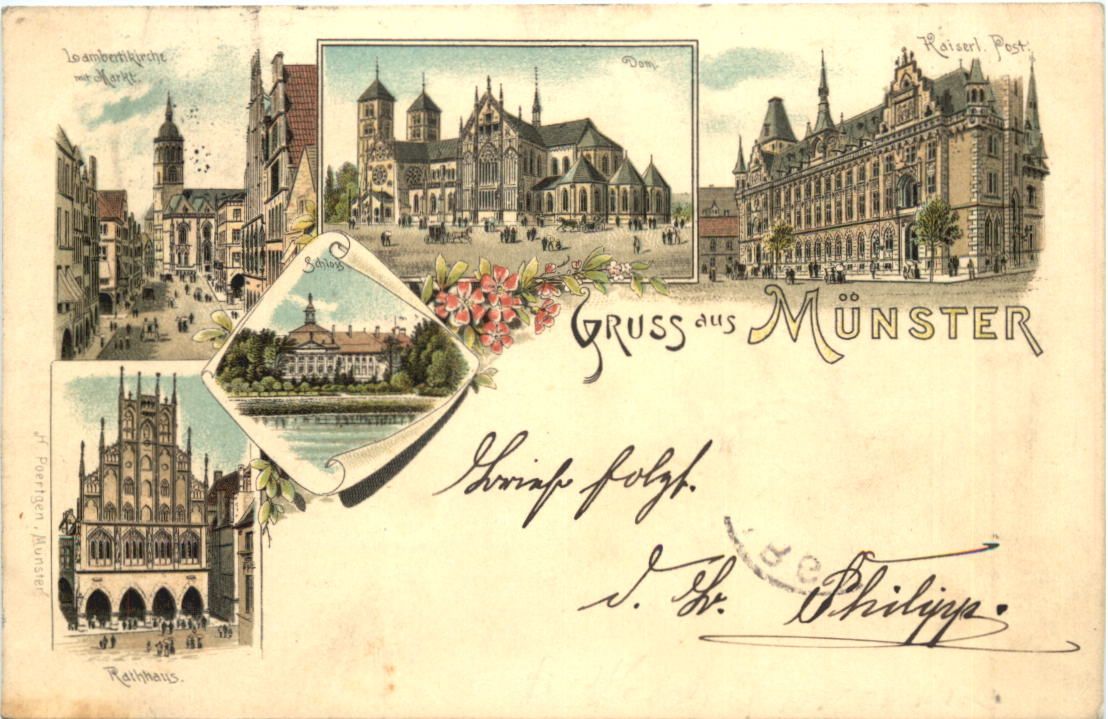 Lambertikirche
mit Markt.
Dom.
Kaiserl. Post.
Schloss
GRUSS aus MÜNSTER
Rathhaus.
H Poertgen, Münster
Brief folgt.
d. Philipp.